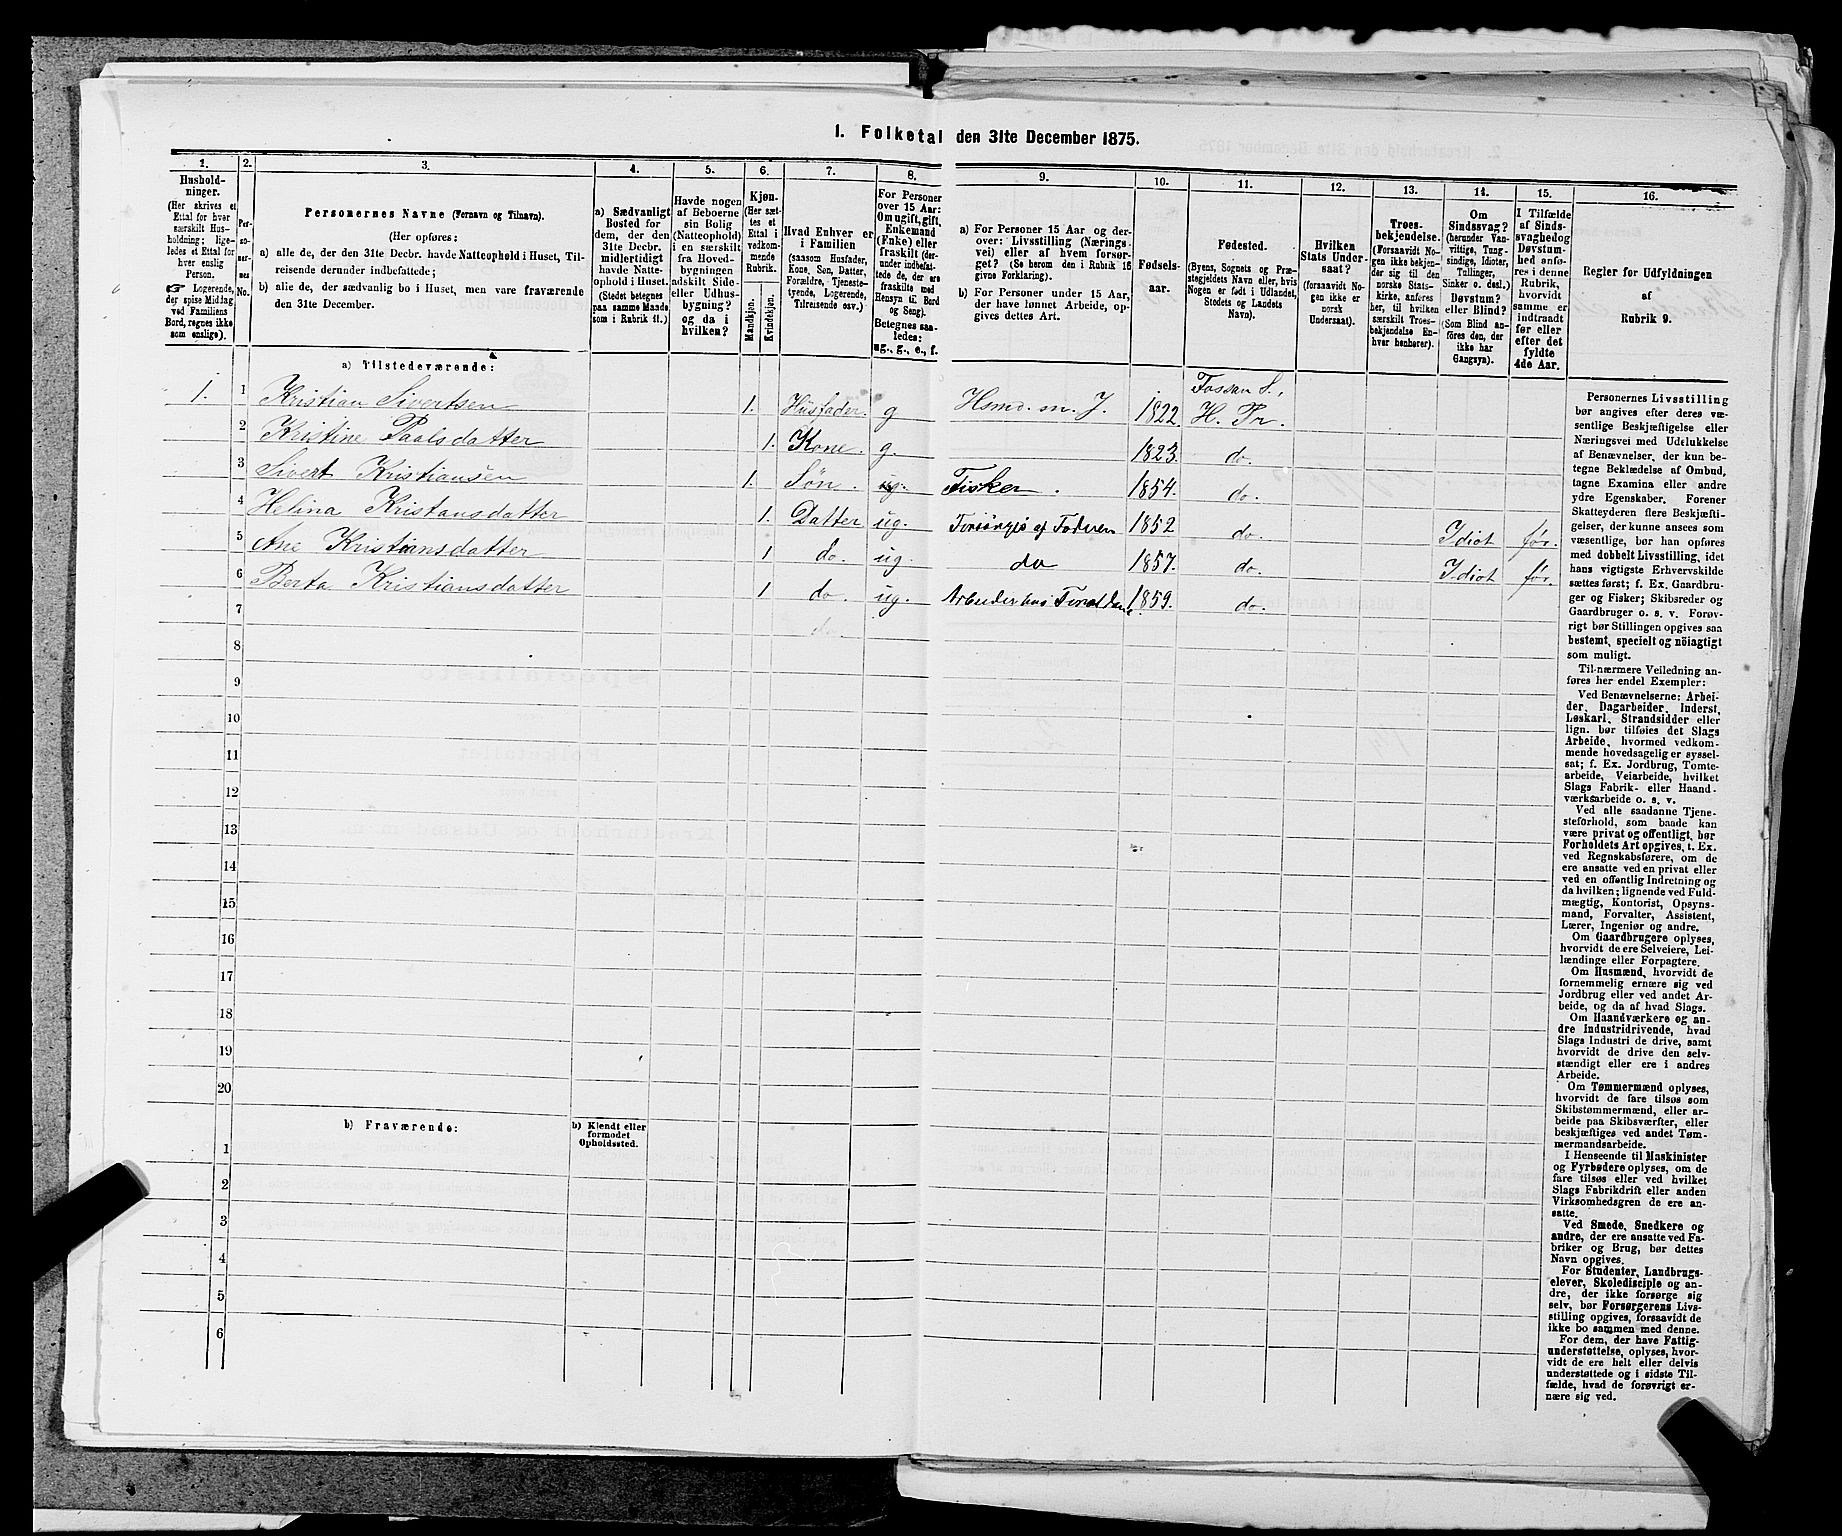 1. Folketal den 31te December 1875.
1. 2. 3. 4. 5. 6. 7. 8. 9. 10. 11. 12. 13. 14. 15. 16.
Hushold-
ninger.
(Her skrives et
Ettal for hver
særskilt Hus-
holdning; lige-
ledes et Ettal for
hver enslig
Person.
☞ Logerende,
der spise Middag
ved Familiens
Bord, regnes ikke
som enslige).
Per-
so-
ner-
nes
No.
Personernes Navne (Fornavn og Tilnavn).
(Her opføres:
a) alle de, der den 31te Decbr. havde Natteophold i Huset, Til-
reisende derunder indbefattede;
b) alle de, der sædvanlig bo i Huset, men vare fraværende
den 31te December.
a) Sædvanligt
Bosted for
dem, der den
31te Decbr.
midlertidigt
havde Natte-
ophold i Huset.
(Stedet betegnes
paa samme Maade
som i Rubrik 11.)
Havde nogen
af Beboerne
sin Bolig
(Natteophold)
i en særskilt
fra Hoved-
bygningen
adskilt Side-
eller Udhus-
bygning?
og da i
hvilken?
Kjøn.
(Her sæt-
tes et
Ettal i
vedkom-
mende
Rubrik.
Mandkjøn.
Kvindekjøn.
Hvad Enhver er
i Familien
(saasom Husfader,
Kone, Søn, Datter,
Forældre, Tjeneste-
tyende, Logerende,
Tilreisende osv.)
For Personer
over 15 Aar:
Om ugift, gift,
Enkemand
(Enke) eller
fraskilt (der-
under indbefat-
tede de, der ere
fraskilte med
Hensyn til Bord
og Seng).
Betegnes saa-
ledes:
ug., g., e., f.
a) For Personer 15 Aar og der-
over: Livsstilling (Nærings-
vei) eller af hvem forsør-
get? (Se herom den i Rubrik 16
givne Forklaring).
b) For Personer under 15 Aar,
der have lønnet Arbeide, op-
gives dettes Art.
Fødsels-
aar.
Fødested.
(Byens, Sognets og Præ-
stegjeldets Navn eller, hvis
Nogen er født i Udlandet,
Stedets og Landets
Navn).
Hvilken
Stats Under-
saat?
(forsaavidt No-
gen ikke er
norsk
Undersaat).
Troes-
bekjendelse.
(Forsaavidt No-
gen ikke bekjen-
der sig til den
norske Stats-
kirke, anføres
her, til hvilken
særskilt Troes-
bekjendelse En-
hver henhører).
Om
Sindssvag?
(herunder Van-
vittige, Tung-
sindige, Idioter,
Tullinger,
Sinker o. desl.)
Døvstum?
eller Blind?
(Som Blind an-
føres den, der
ikke har
Gangsyn).
I Tilfælde
af Sinds-
svaghed og
Døvstum-
hed anfø-
res i denne
Rubrik,
hvorvidt
samme er
indtraadt
før eller
efter det
fyldte
4de Aar.
Regler for Udfyldningen
af
Rubrik 9.
a) Tilstedeværende:
Fossan S.,
1. 1 Kristian Sivertsen 1. Husfader. g Hsmd. m. J. 1822. H. Pr.
2 Kristine Paalsdatter 1. Kone. g. 1823. do.
3 Sivert Kristiansen 1. Søn. ug. Fisker. 1854. do.
4 Helina Kristansdatter 1. Datter ug. Forsørges af Faderen 1852 do. Idiot før.
5 Ane Kristiansdatter 1 do. ug. do 1857. do. Idiot før.
6 Berta Kristiansdatter 1 do. ug. Arbeider hos Forældrene 1859. do.
7 do.
8
9
10
11
12
13
14
15
16
17
18
19
20
b) Fraværende:
b) Kjendt eller
formodet
Opholdssted.
1
2
3
4
5
6
Personernes Livsstilling
bør angives efter deres væ-
sentlige Beskjæftigelse eller
Næringsvei med Udelukkelse
af Benævnelser, der kun be-
tegne Beklædelse af Ombud,
tagne Examina eller andre
ydre Egenskaber. Forener
Skatteyderen flere Beskjæfti-
gelser, der kunne ansees som
væsentlige, bør han opføres
med dobbelt Livsstilling, idet
hans vigtigste Erhvervskilde
sættes først; f. Ex. Gaardbru-
ger og Fisker; Skibsreder og
Gaardbruger o. s. v. Forøv-
rigt bør Stillingen opgives saa
bestemt, specielt og nöiagtigt
som muligt.
Til nærmere Veiledning an-
føres her endel Exempler:
Ved Benævnelserne: Arbei-
der, Dagarbeider, Inderst,
Løskarl, Strandsidder eller
lign. bør tilføies det Slags
Arbeide, hvormed vedkom-
mende hovedsagelig er syssel-
sat; f. Ex. Jordbrug, Tomte-
arbeide, Veiarbeide, hvilket
Slags Fabrik- eller Haand-
værksarbeide o. s. v.
Ved alle saadanne Tjene-
steforhold, som baade kan
være privat og offentligt, bør
Forholdets Art opgives, t. Ex.
ved Regnskabsførere, om de
ere ansatte ved en privat eller
ved en offentlig Indretning og
da hvilken; lignende ved Fuld-
mægtig, Kontorist, Opsyns-
mand, Forvalter, Assistent,
Lærer, Ingeniør og andre.
Om Gaardbrugere oplyses,
hvorvidt de ere Selveiere, Lei-
lændinge eller Forpagtere.
Om Husmænd, hvorvidt de
fornemmelig ernære sig ved
Jordbrug eller ved andet Ar-
beide, og da af hvad Slags.
Om Haandværkere og an-
dre Industridrivende, hvad
Slags Industri de drive, samt
hvorvidt de drive den selv-
stændigt eller ere i andres
Arbeide.
Om Tømmermænd oplyses,
hvorvidt de fare tilsøs som
Skibstømmermænd, eller ar-
beide paa Skibsværfter, eller
beskjæftiges ved andet Tøm-
mermandsarbeide.
I Henseende til Maskinister
og Fyrbødere oplyses, om de
fare tilsøs eller ved hvilket
Slags Fabrikdrift eller anden
Virksomhedsgren de ere an-
satte.
Ved Smede, Snedkere og
andre, der ere ansatte ved Fa-
briker og Brug, bør dettes
Navn opgives.
For Studenter, Landbrugs-
elever, Skoledisciple og an-
dre, der ikke forsørge sig
selv, bør Forsørgerens Livs-
stilling opgives, forsaavidt de
ikke bo sammen med denne.
For dem, der have Fattig-
understøttelse, oplyses, hvor-
vidt de ere helt eller delvis
understøttede og i sidste Til-
fælde, hvad de forøvrigt er-
nære sig ved.